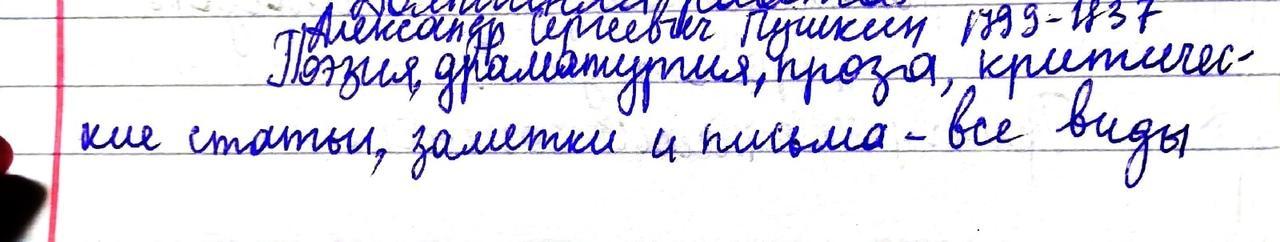 Домашняя работа.
Александр Сергеевич Пушкин 1799-1837
Поэзия, драматургия, проза, критичес-
кие статьи, заметки и письма - все виды